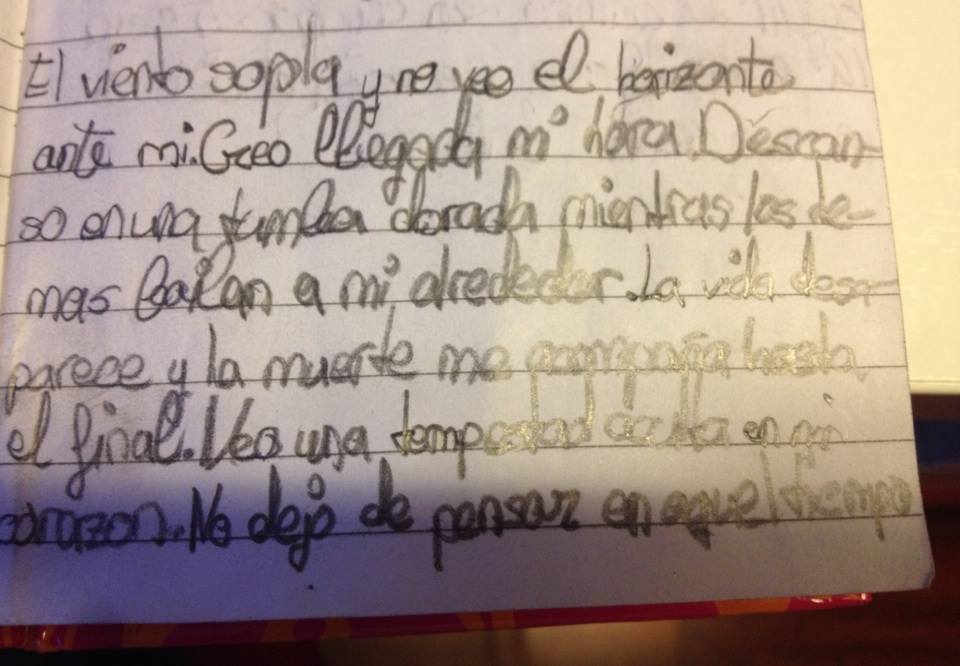 El viento sopla y no veo el horizonte
ante mi. Creo llegada mi hora. Descan-
so en una tumba dorada mientras los de-
mas bailan a mi alrededor. La vida desa-
parece y la muerte me acompaña hasta
el final. Veo una tempestad oculta en mi
corazon. No dejo de pensar en aquel tiempo